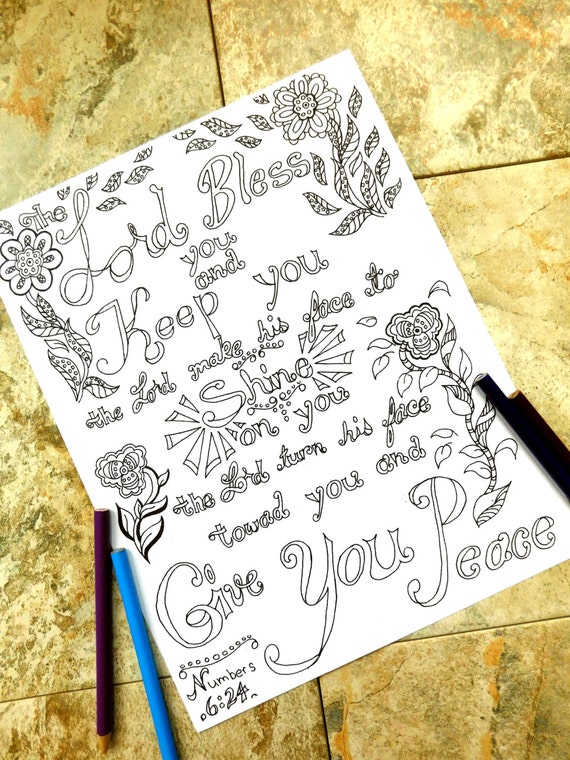 The Lord Bless
you
and
Keep you
the Lord make his face to
Shine
on you
the Lord turn his face
towad you and
Give You Peace
Numbers
6:24